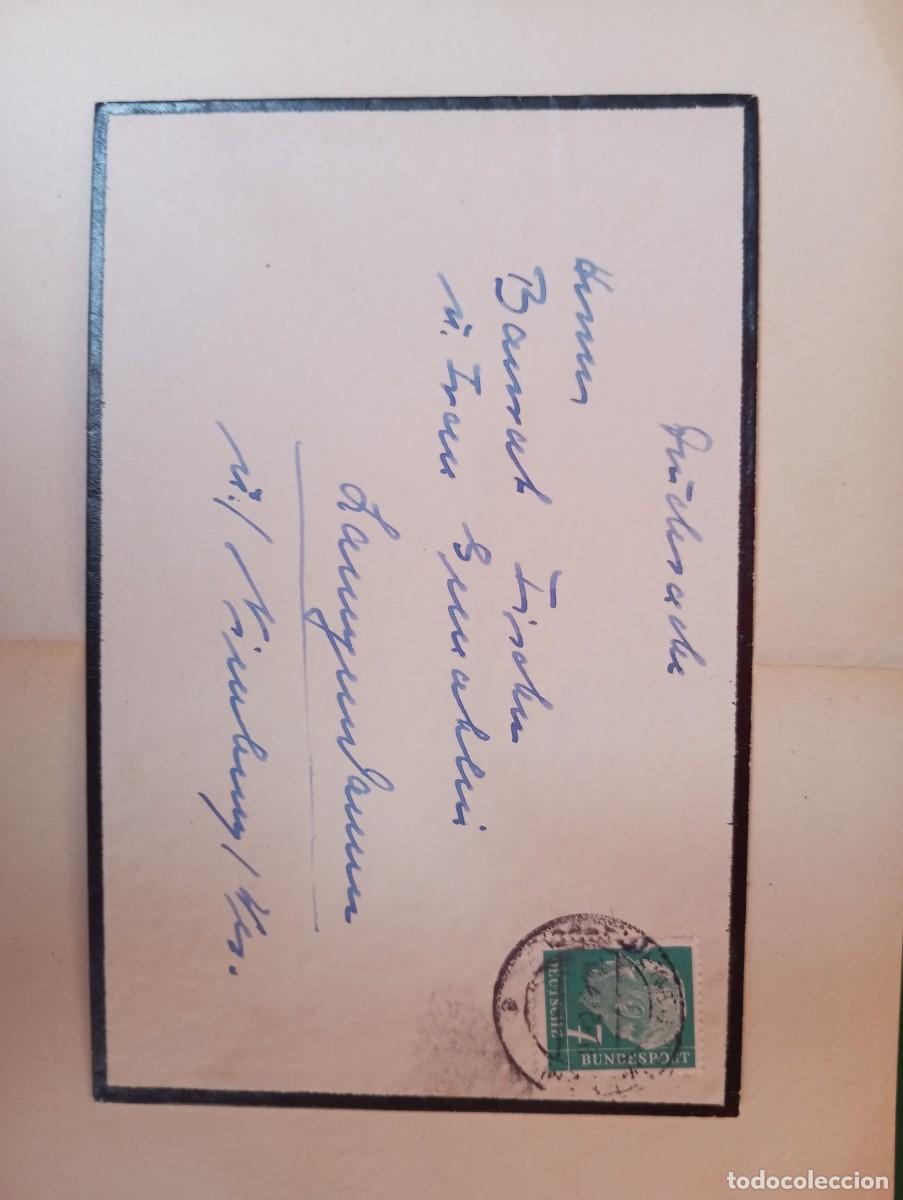 Drucksache
Herrn
Baurat Fischer
u. Frau Gemahlin
Langendamm
ü./ Nienburg / Wes.
DEUTSCHE
BUNDESPOST
7
todocoleccion